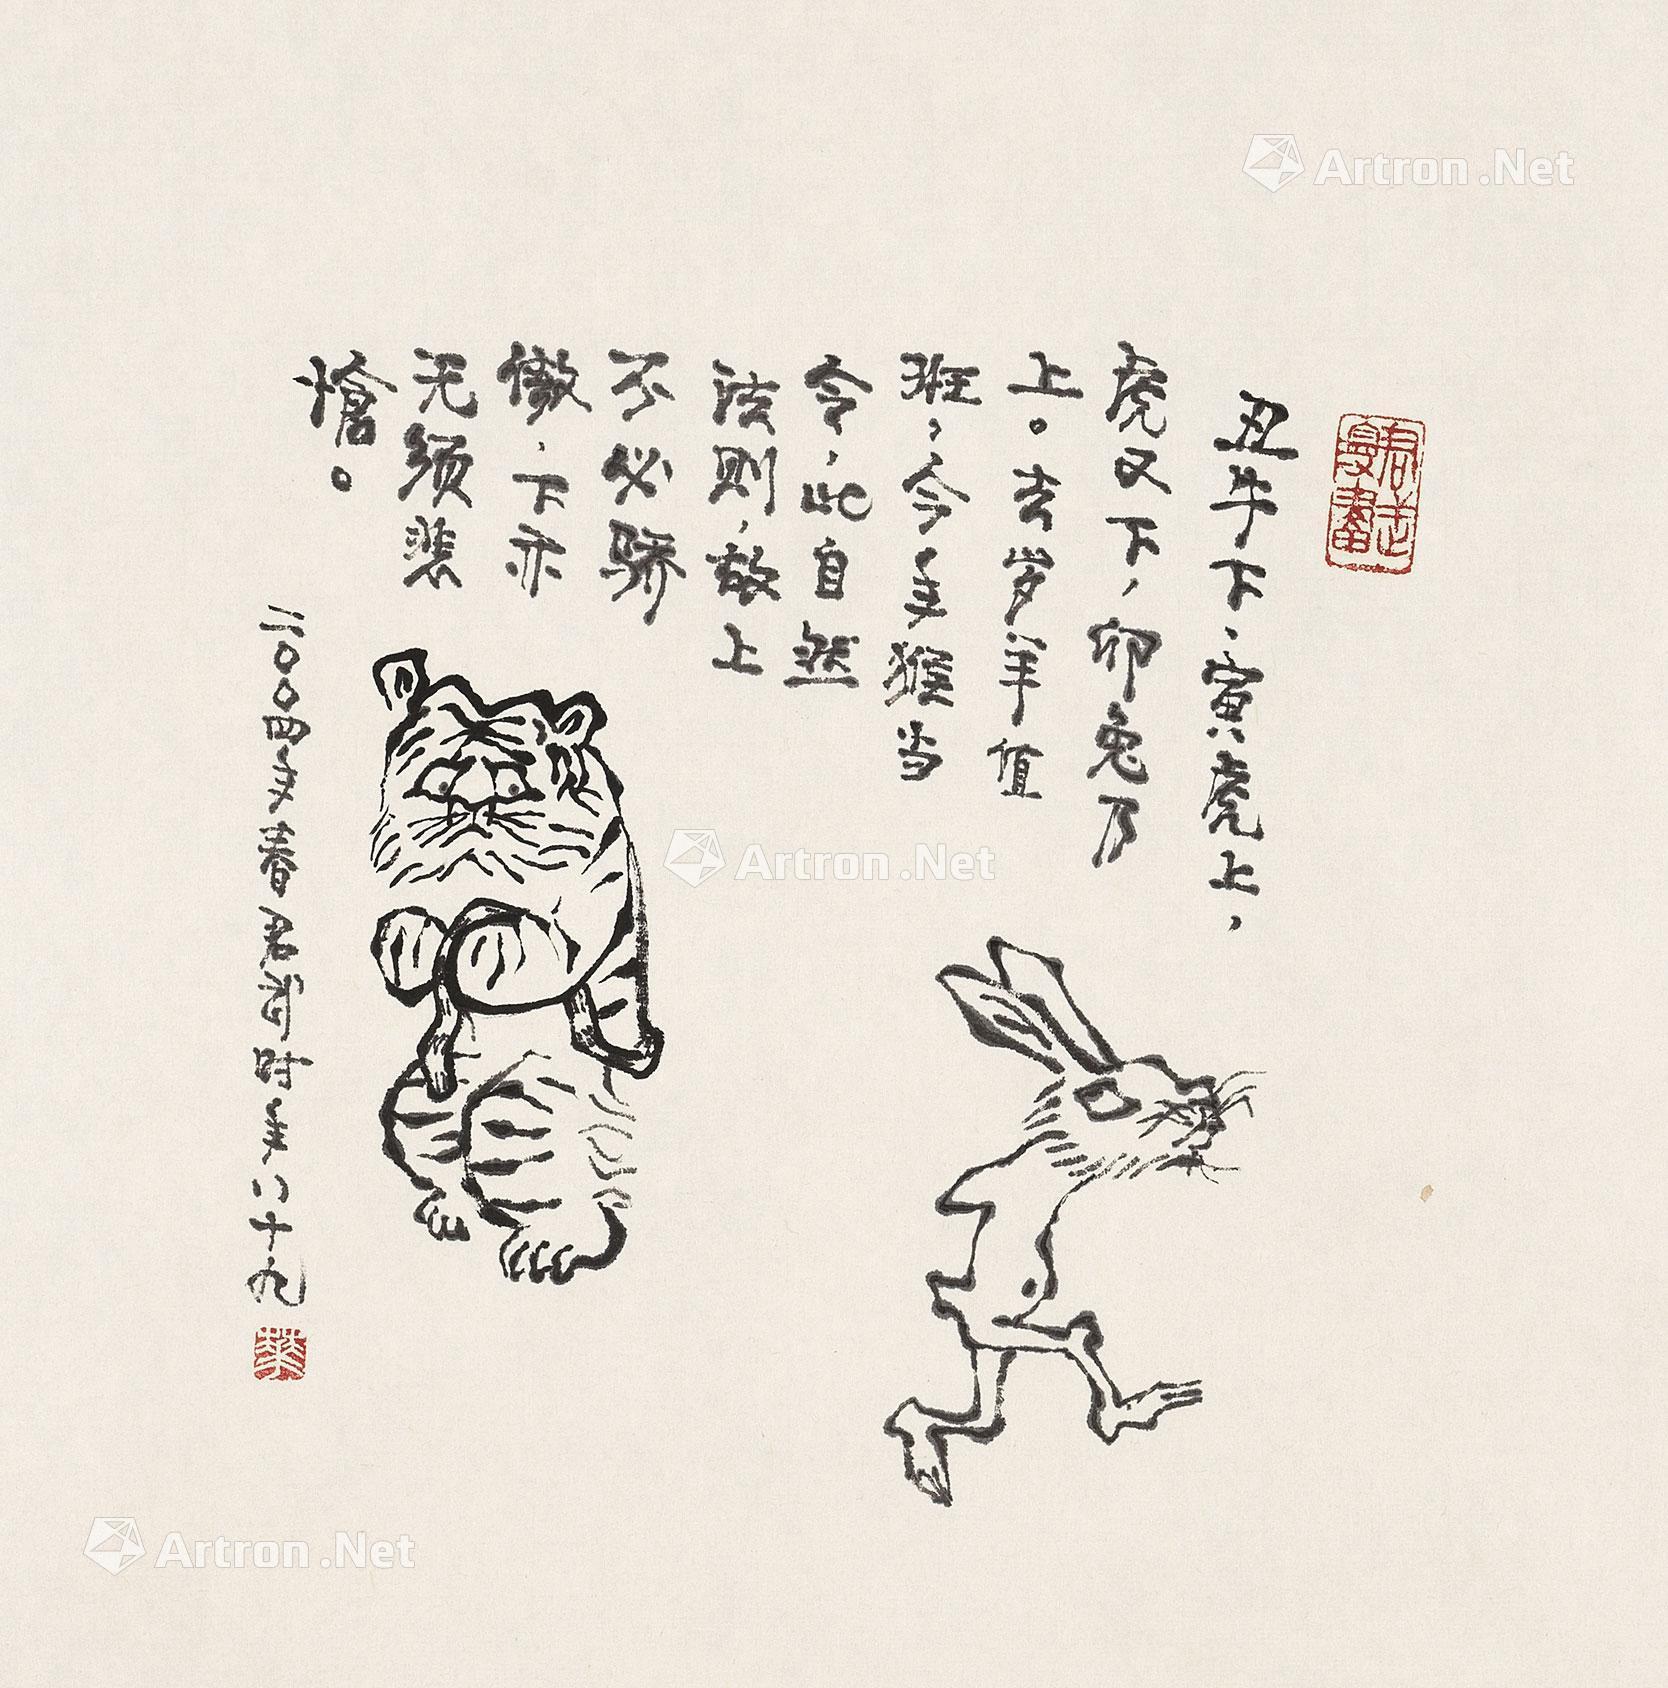 丑牛下、寅虎上，
虎又下，卯兔乃
上。去岁羊值
班，今年猴当
令，此自然
法则，故上
不必骄
傲，下亦
无须悲
怆。
二〇〇四年春君武时年八十九
君武
漫画
華
Artron.Net
Artron.Net
Artron.Net